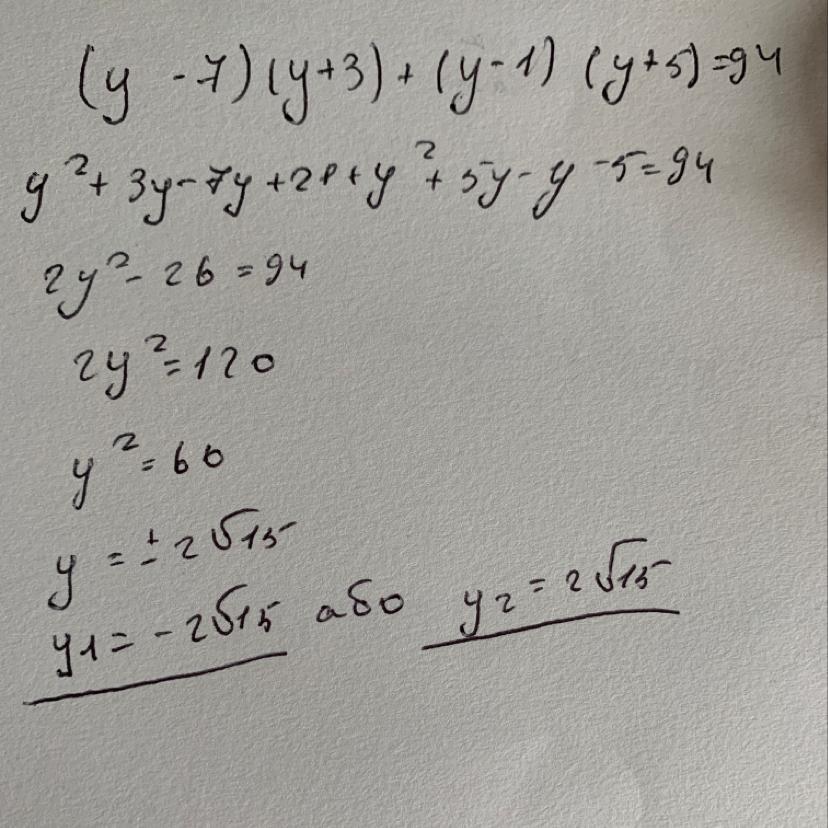 (y - 7)(y+3) + (y - 1) (y+5) = 94
y² + 3y - 7y + 21 + y² + 5y - y - 5 = 94
2y² - 26 = 94
2y² = 120
y² = 60
y = ± 2√15
y1 = - 2√15 або y2 = 2√15